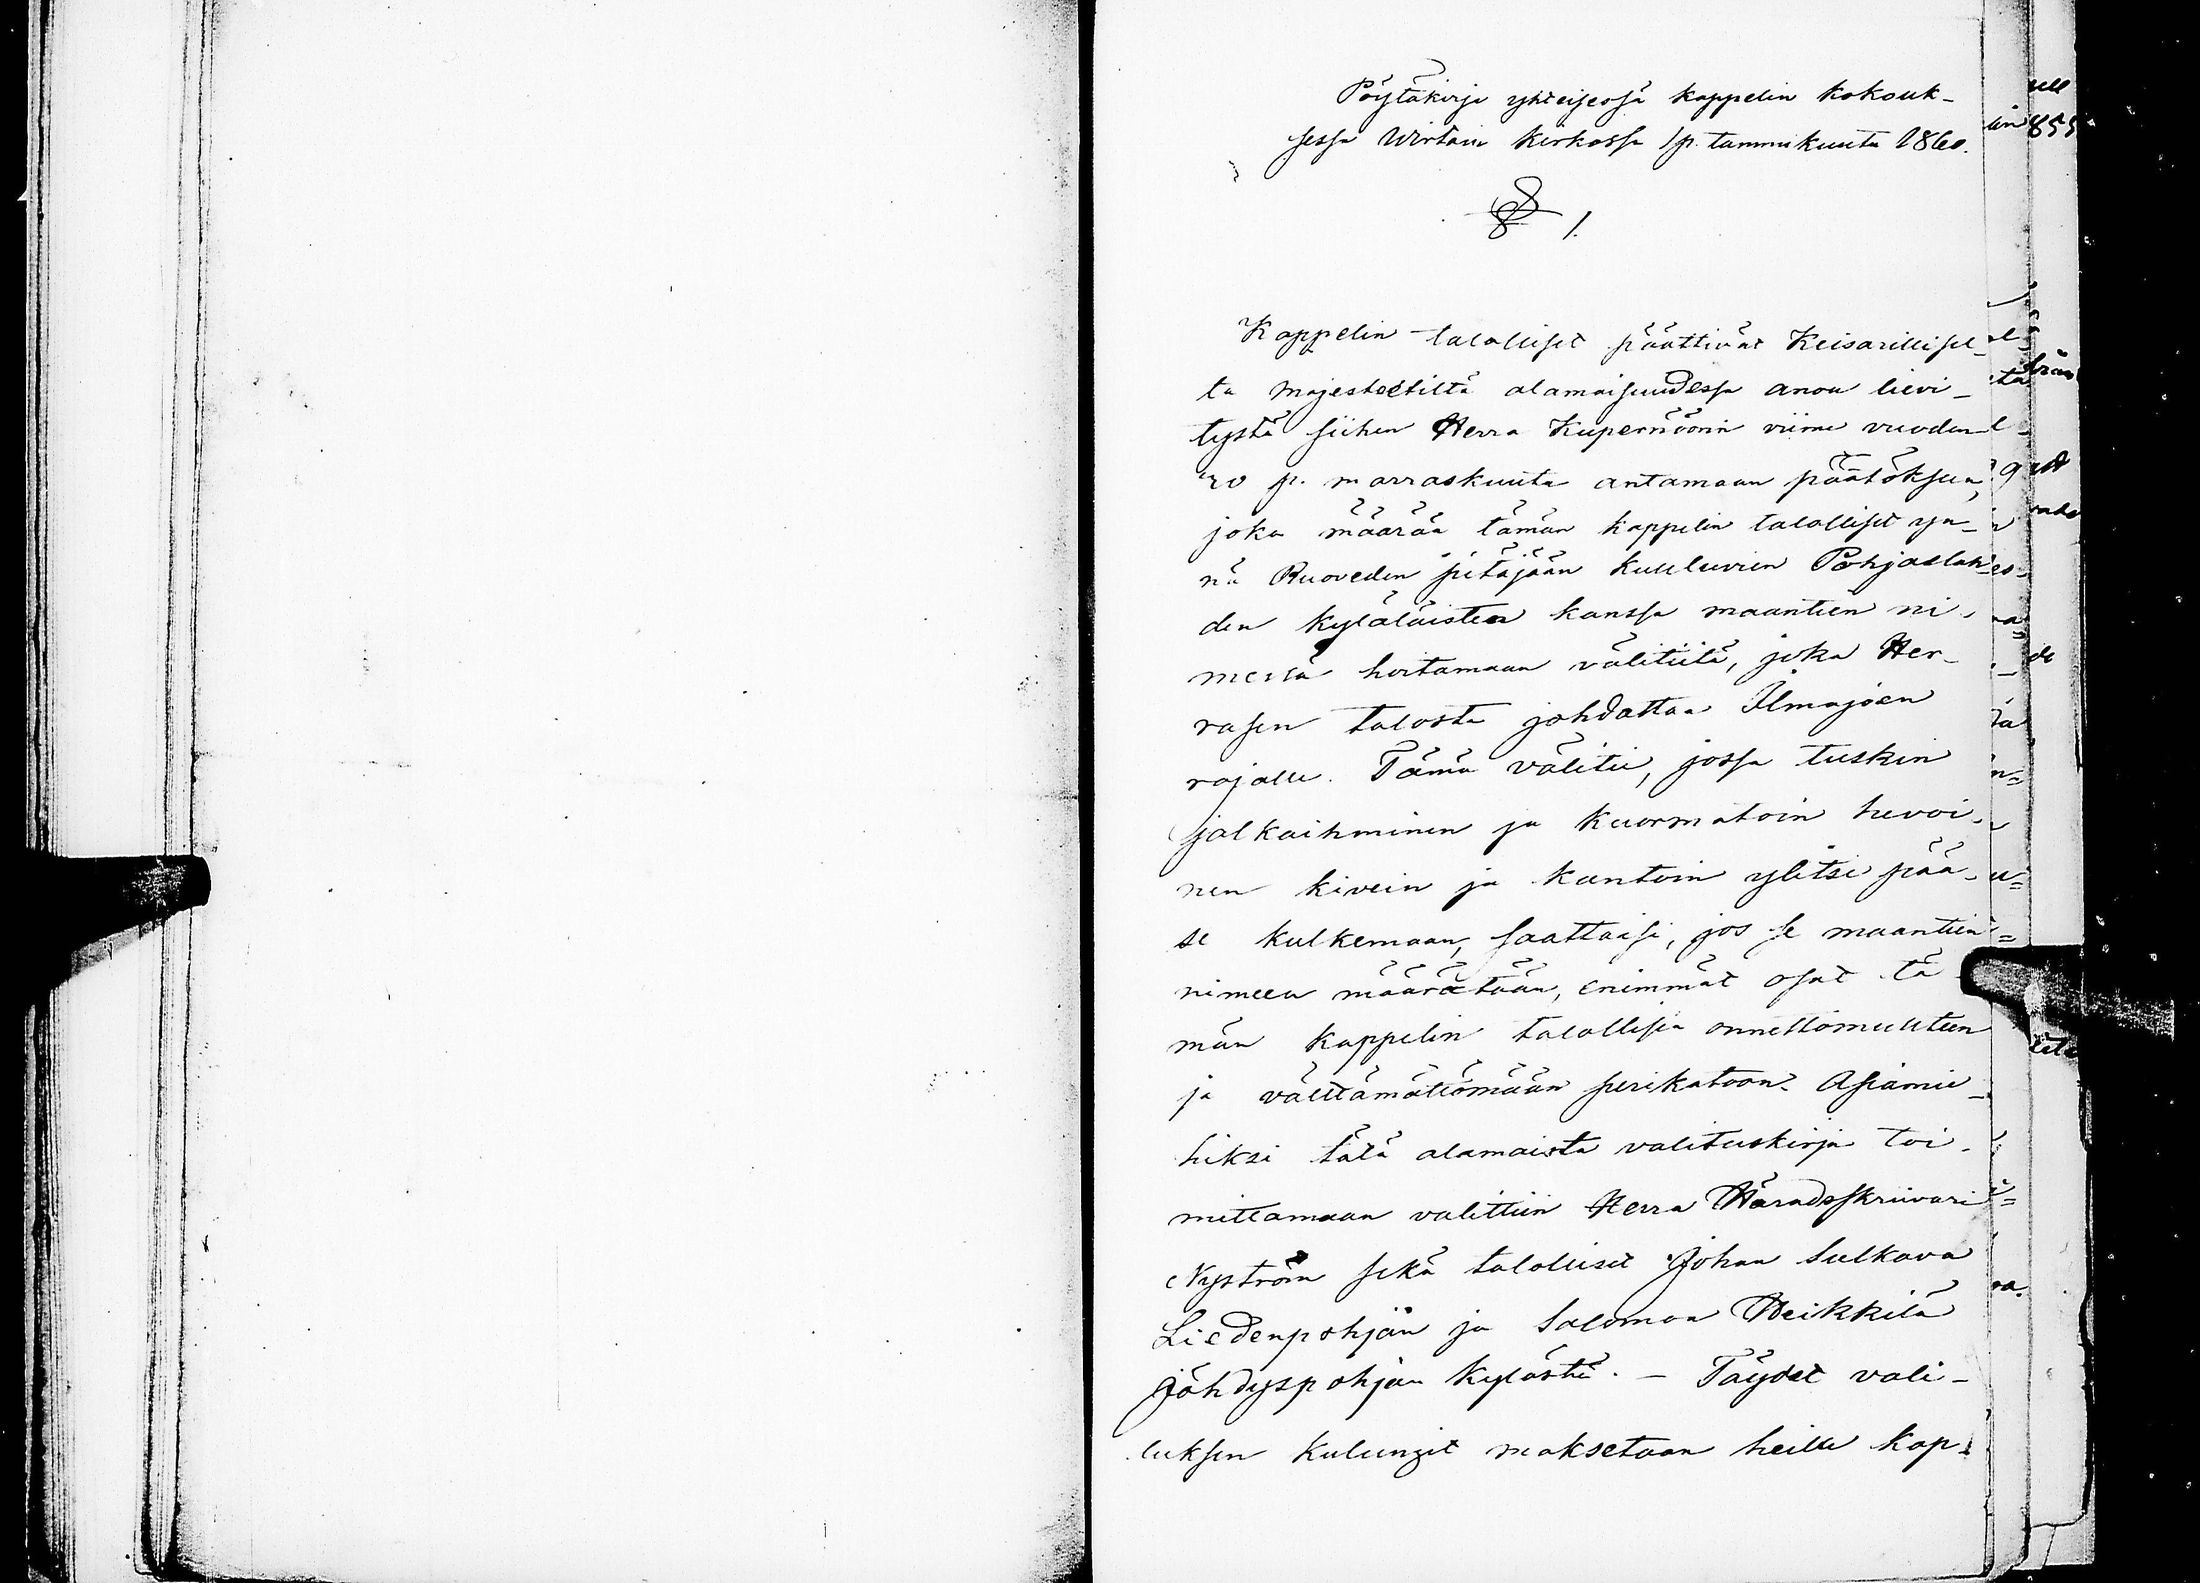 Pöytäkirja yhteisesä kappelin kokouk-
sessa Wirtain kirkossa 1 p. tammikuuta 1860.
§ 1.
Kappelin talolliset päättivät Keisarillisel-
ta Majesteetiltä alamaisuudessa anoa lievi-
tystä siihen Herra Kupernöörin viime vuoden
20 p. marraskuuta antamaan päätöksen,
joka määrää tämän kappelin talolliset yn-
nä Ruoveden pitäjään kuuluvien Pohjaslah-
den kyläläisten kanssa maantien ni-
messä hoitamaan välitiitä, joka Her-
rasen talosta johdattaa Ilmajoen
rajalle. Tämä välitie, jossa tuskin
jalkaihminen ja kuormatoin hevoi-
nen kivein ja kantoin ylitse pää-
se kulkemaan, saattaisi, jos se maantien
nimeen määrätään, enimmät osat tä-
män kappelin talollisia onnettomuuteen
ja välttämättömään perikatoon. Asiamie-
hiksi tätä alamaista valituskirja toi-
mittamaan valittiin Herra Häradsskriivari
Nyström sekä talolliset Johan Sulkava
Liedenpohjän ja Salomon Heikkilä
Jähdyspohjan kylästä. - Täydet vali-
tuksen kulungit maksetaan heille kap-